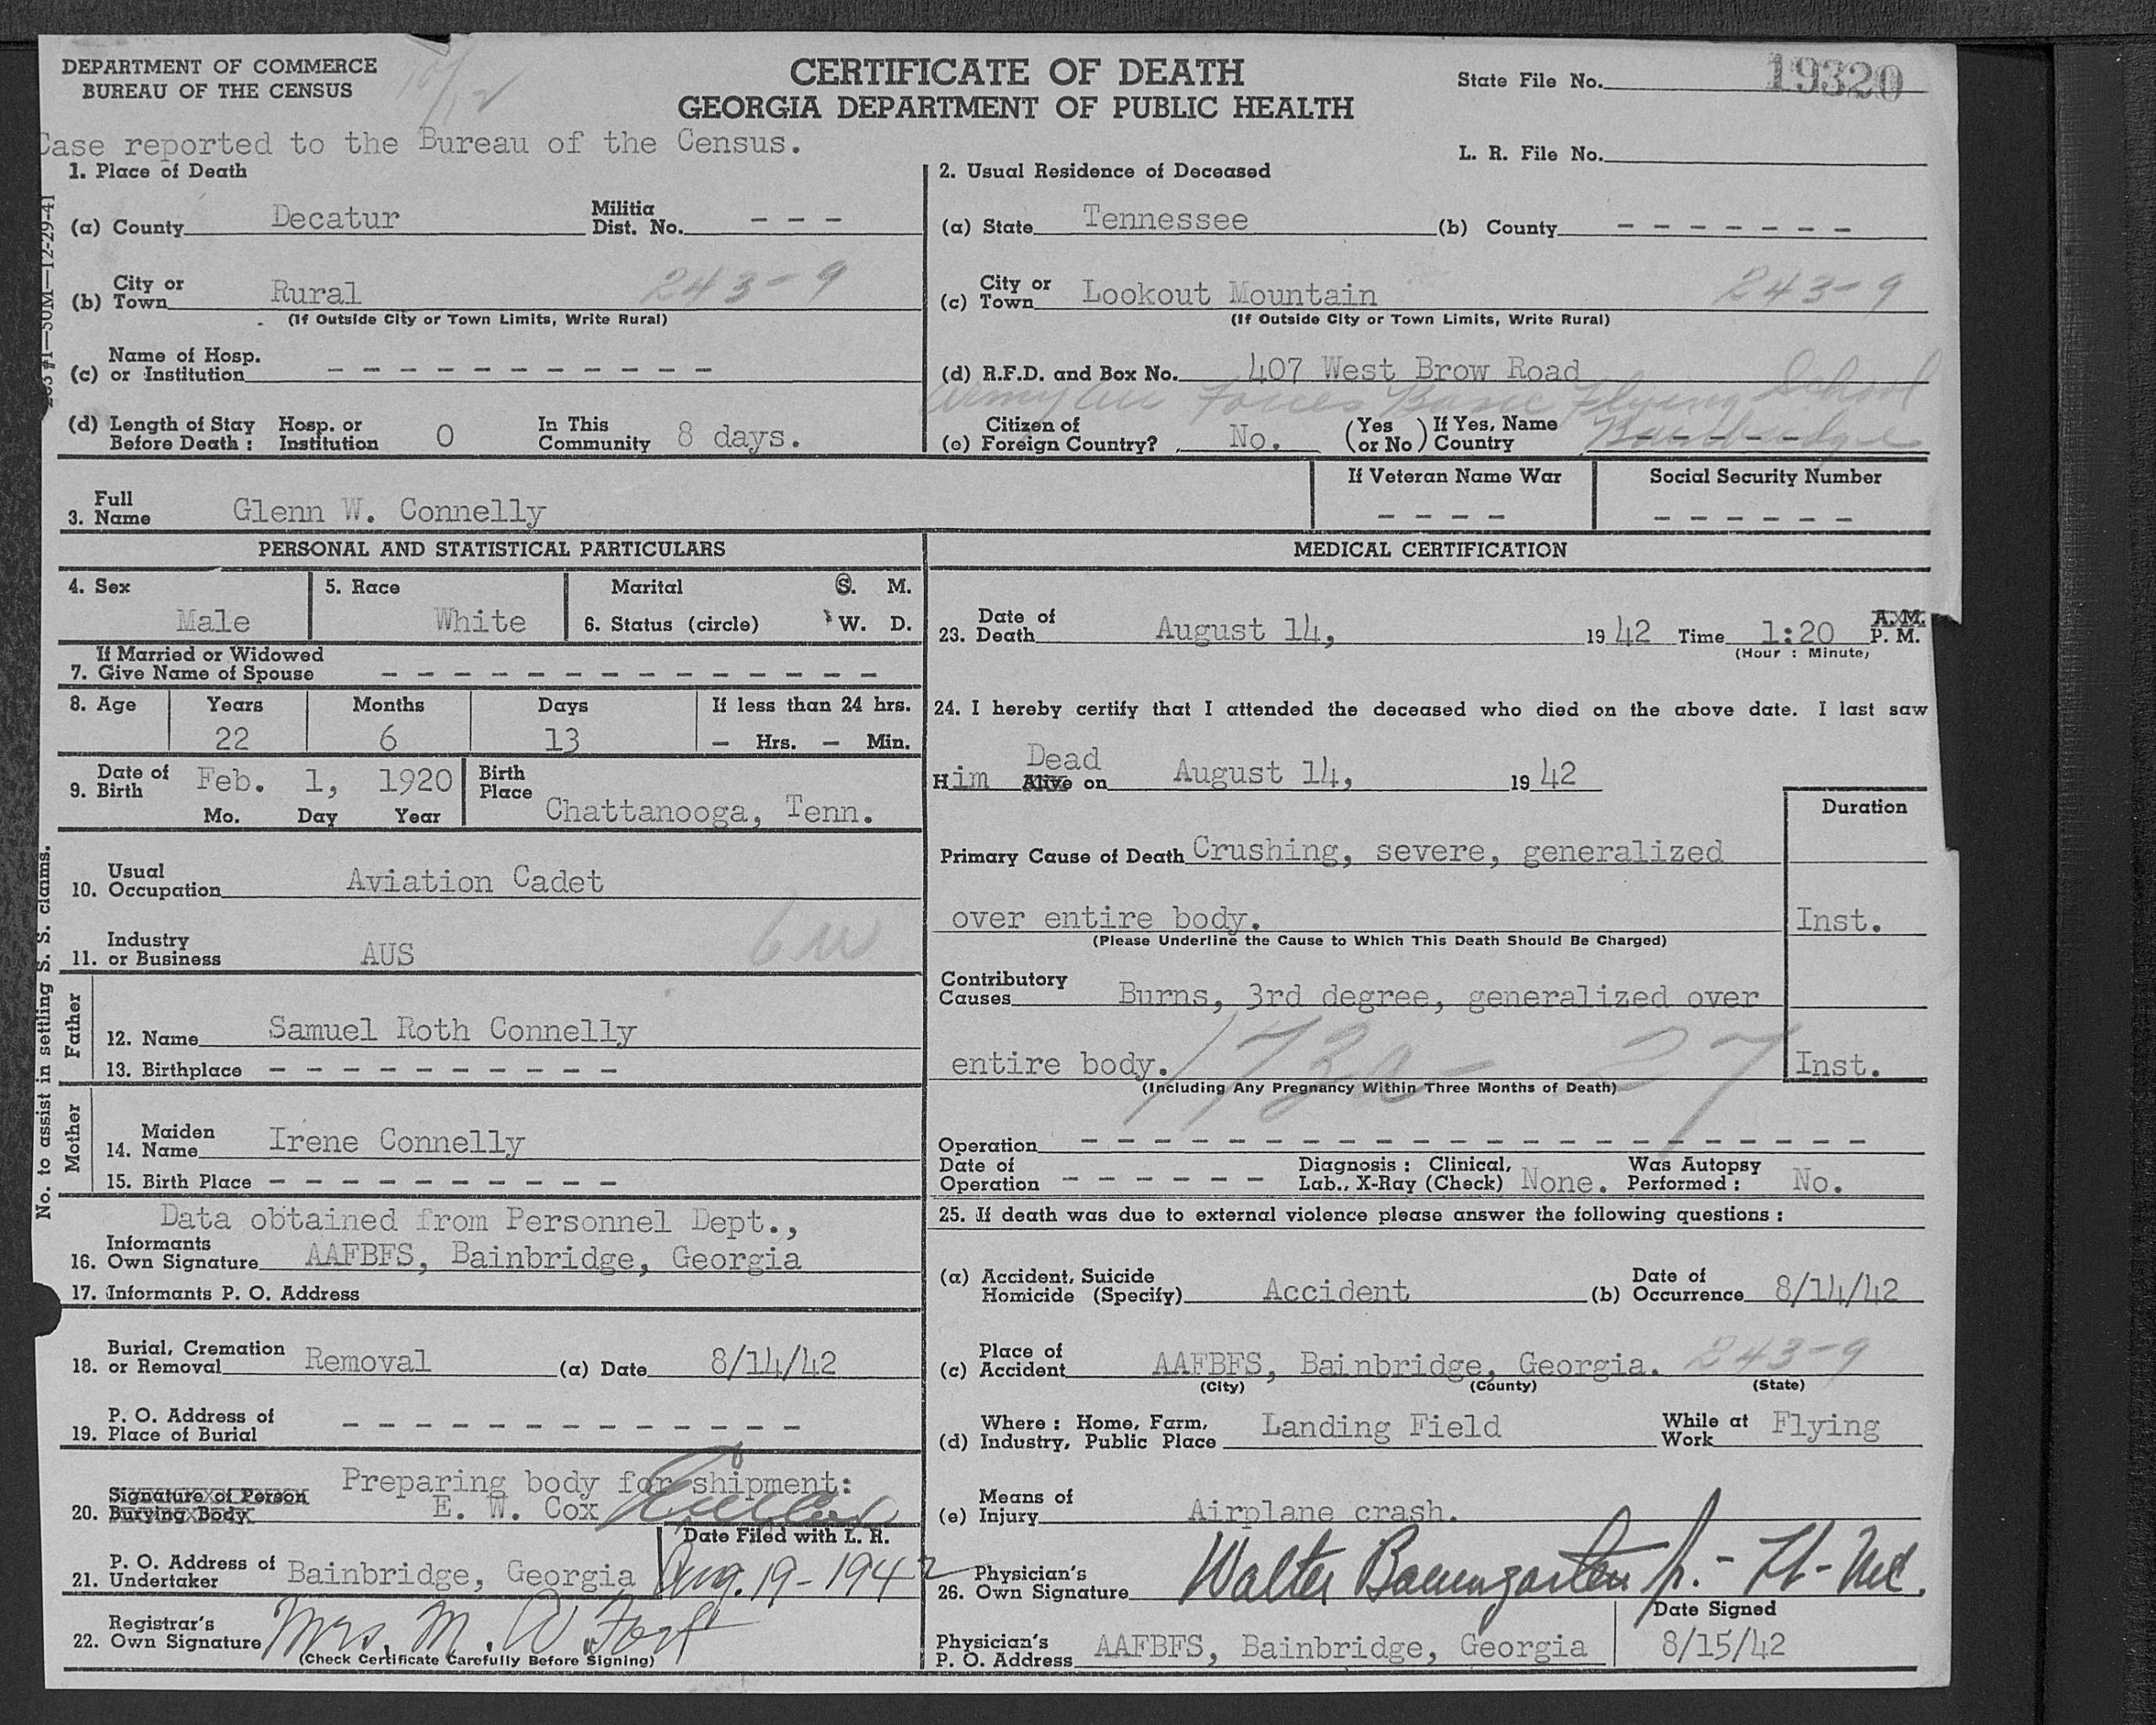 DEPARTMENT OF COMMERCE
BUREAU OF THE CENSUS
CERTIFICATE OF DEATH
GEORGIA DEPARTMENT OF PUBLIC HEALTH
State File No. 19320
L. R. File No.
Case reported to the Bureau of the Census.
1. Place of Death
(a) County Decatur Militia Dist. No. - - -
(b) City or Town Rural 243-9
(If Outside City or Town Limits, Write Rural)
(c) Name of Hosp. or Institution - - - - - - - - - - -
(d) Length of Stay Before Death: Hosp. or Institution 0 In This Community 8 days.
2. Usual Residence of Deceased
(a) State Tennessee (b) County - - - - - - -
(c) City or Town Lookout Mountain 243-9
(If Outside City or Town Limits, Write Rural)
(d) R.F.D. and Box No. 407 West Brow Road
Army Air Forces Basic Flying School
Bainbridge
(e) Citizen of Foreign Country? No. (Yes or No) If Yes, Name Country - - - - -
3. Full Name Glenn W. Connelly
If Veteran Name War - - - -
Social Security Number - - - - - -
PERSONAL AND STATISTICAL PARTICULARS
4. Sex Male
5. Race White
6. Marital Status (circle) S. M. W. D.
7. If Married or Widowed Give Name of Spouse - - - - - - - - - - - - - -
8. Age Years Months Days If less than 24 hrs.
22 6 13 - Hrs. - Min.
9. Date of Birth Feb. 1, 1920
Mo. Day Year
Birth Place Chattanooga, Tenn.
10. Usual Occupation Aviation Cadet
11. Industry or Business AUS
Father
12. Name Samuel Roth Connelly
13. Birthplace - - - - - - - - - - -
Mother
14. Maiden Name Irene Connelly
15. Birth Place - - - - - - - - - - -
Data obtained from Personnel Dept.,
16. Informants Own Signature AAFBFS, Bainbridge, Georgia
17. Informants P. O. Address
18. Burial, Cremation or Removal Removal (a) Date 8/14/42
19. P. O. Address of Place of Burial - - - - - - - - - - - - - -
Preparing body for shipment:
20. Signature of Person Burying Body E. W. Cox
Date Filed with L. R.
21. P. O. Address of Undertaker Bainbridge, Georgia Aug. 19-1942
22. Registrar's Own Signature Mrs. M. W. Fort
(Check Certificate Carefully Before Signing)
MEDICAL CERTIFICATION
23. Date of Death August 14, 1942 Time 1:20 A.M. P. M.
(Hour : Minute)
24. I hereby certify that I attended the deceased who died on the above date. I last saw
Him Alive Dead on August 14, 1942
Duration
Primary Cause of Death Crushing, severe, generalized
over entire body. Inst.
(Please Underline the Cause to Which This Death Should Be Charged)
Contributory Causes Burns, 3rd degree, generalized over
entire body. Inst.
173a- 27
(Including Any Pregnancy Within Three Months of Death)
Operation - - - - - - - - - - - - - - - - - - - - - -
Date of Operation - - - - - - Diagnosis: Clinical, Lab., X-Ray (Check) None. Was Autopsy Performed: No.
25. If death was due to external violence please answer the following questions:
(a) Accident, Suicide Homicide (Specify) Accident (b) Date of Occurrence 8/14/42
(c) Place of Accident AAFBFS, Bainbridge, Georgia. 243-9
(City) (County) (State)
(d) Where: Home, Farm, Industry, Public Place Landing Field While at Work Flying
(e) Means of Injury Airplane crash.
26. Physician's Own Signature Walter Baumgarten Jr.
Date Signed
Physician's P. O. Address AAFBFS, Bainbridge, Georgia 8/15/42
No. to assist in settling S. S. claims.